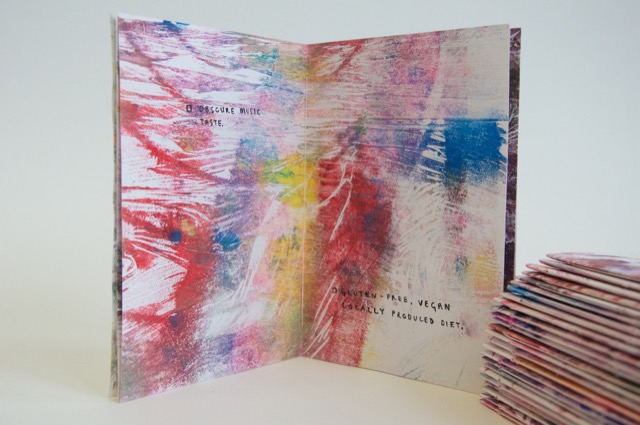 □ OBSCURE MUSIC
TASTE.
□ GLUTEN-FREE, VEGAN
LOCALLY PRODUCED DIET.